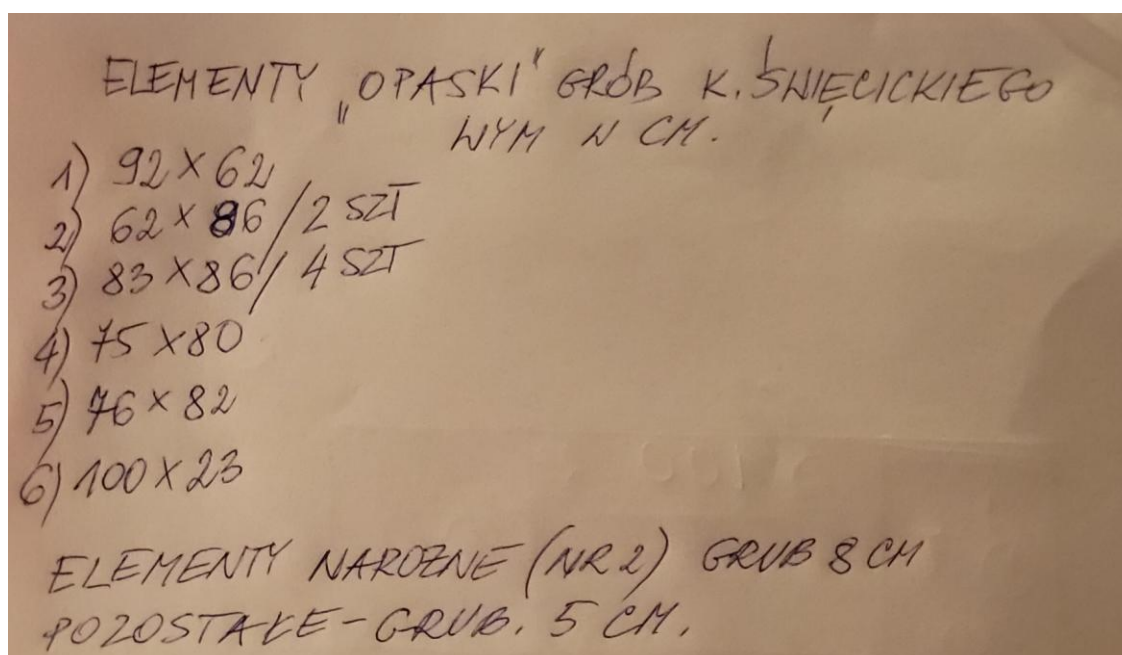 ELEMENTY „OPASKI" GRÓB K. ŚWIĘCICKIEGO
WYM W CM.
1) 92 X 62
2) 62 X 86 / 2 SZT
3) 83 X 86 / 4 SZT
4) 75 X 80
5) 76 X 82
6) 100 X 23
ELEMENTY NAROŻNE (NR 2) GRUB 8 CM
POZOSTAŁE - GRUB. 5 CM.